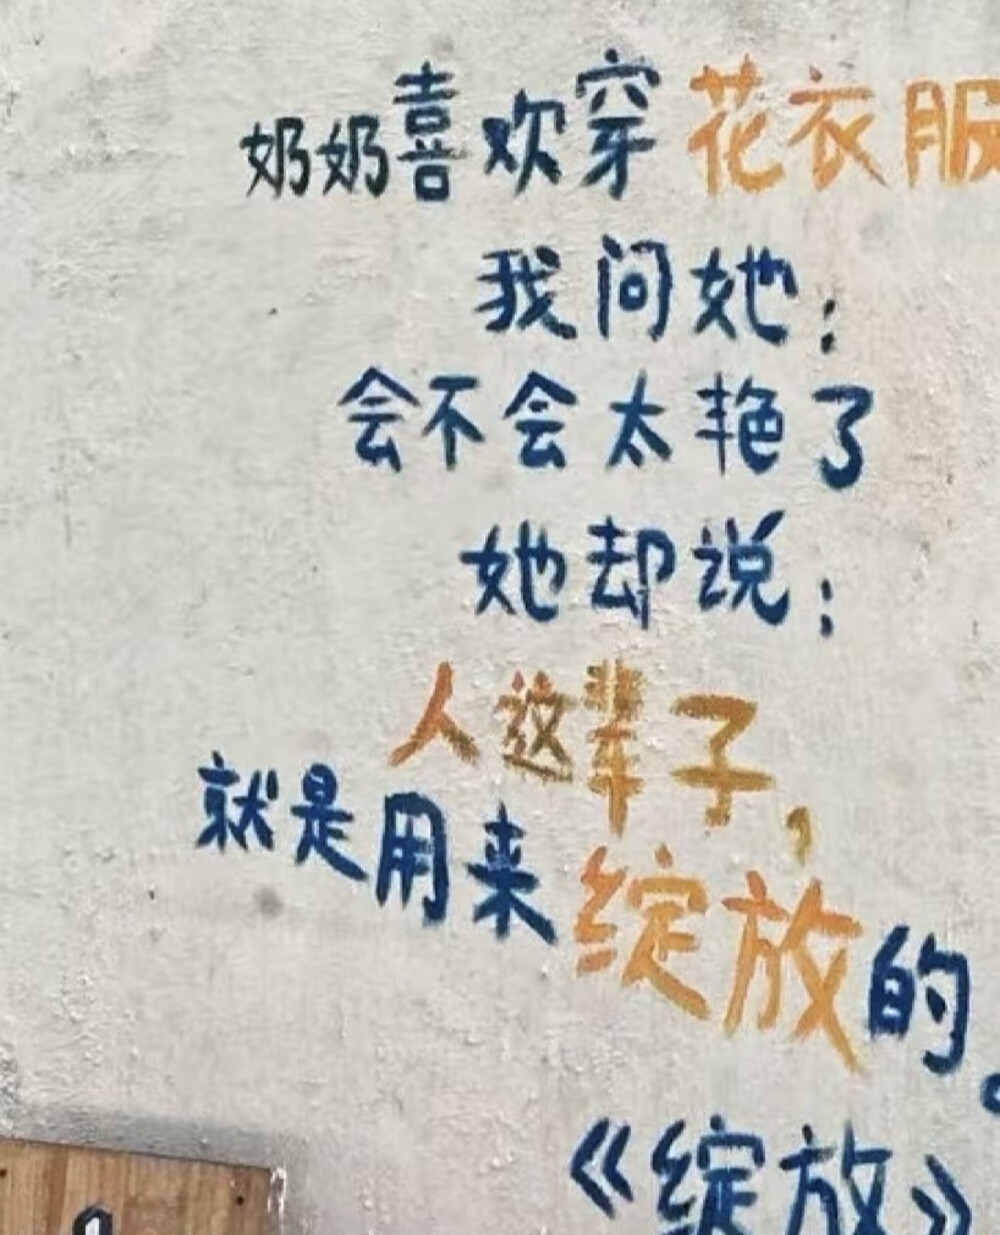 奶奶喜欢穿花衣服
我问她：
会不会太艳了
她却说：
人这辈子，
就是用来绽放的。
《绽放》